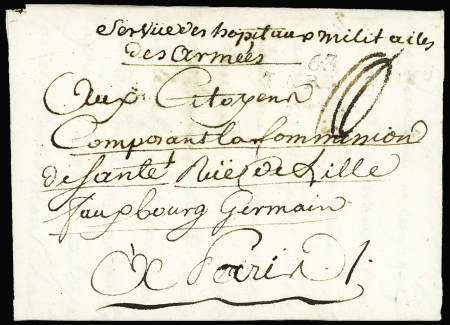 Service des hopitaux militaires
des armées
63
Aux Citoyens
Composant la Commission
de Santé Rüe de Lille
Fauxbourg Germain
à Paris